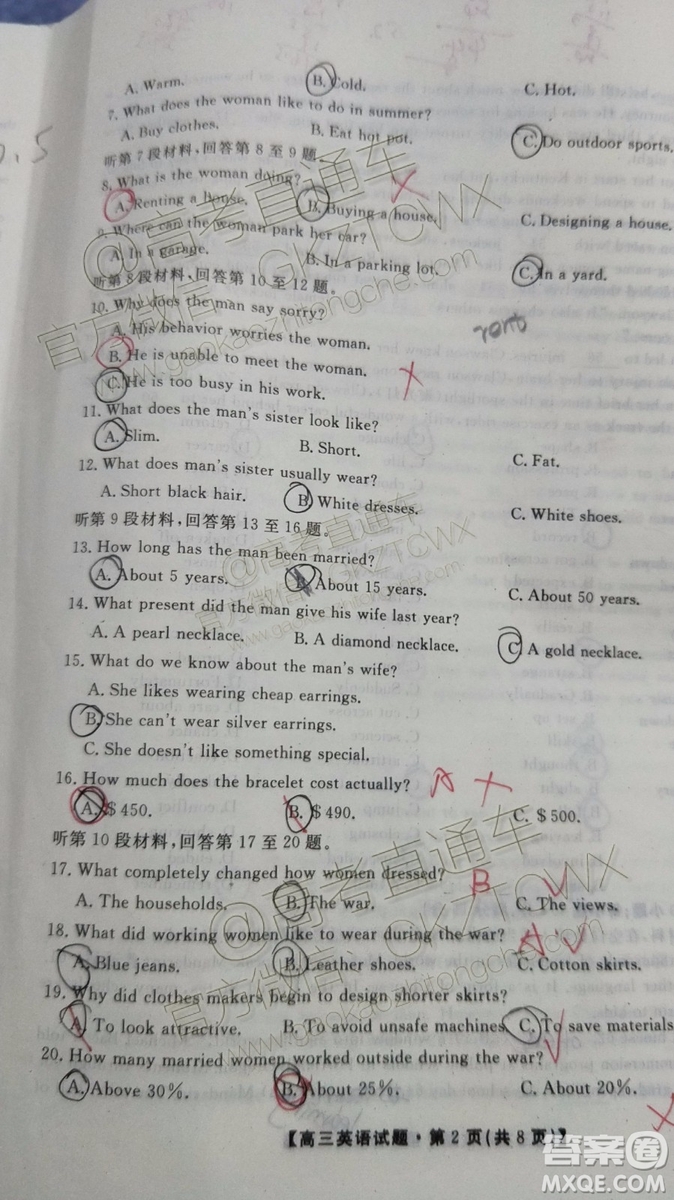 A. Warm. B. Cold. C. Hot.
7. What does the woman like to do in summer?
A. Buy clothes. B. Eat hot pot. C. Do outdoor sports.
听第7段材料,回答第8至9题。
8. What is the woman doing?
A. Renting a house. B. Buying a house. C. Designing a house.
9. Where can the woman park her car?
A. In a garage. B. In a parking lot. C. In a yard.
听第8段材料,回答第10至12题。
10. Why does the man say sorry?
A. His behavior worries the woman.
B. He is unable to meet the woman.
C. He is too busy in his work.
11. What does the man's sister look like?
A. Slim. B. Short. C. Fat.
12. What does man's sister usually wear?
A. Short black hair. B. White dresses. C. White shoes.
听第9段材料,回答第13至16题。
13. How long has the man been married?
A. About 5 years. B. About 15 years. C. About 50 years.
14. What present did the man give his wife last year?
A. A pearl necklace. B. A diamond necklace. C. A gold necklace.
15. What do we know about the man's wife?
A. She likes wearing cheap earrings.
B. She can't wear silver earrings.
C. She doesn't like something special.
16. How much does the bracelet cost actually? A
A. $450. B. $490. C. $500.
听第10段材料,回答第17至20题。
17. What completely changed how women dressed? B
A. The households. B. The war. C. The views.
18. What did working women like to wear during the war? A
A. Blue jeans. B. Leather shoes. C. Cotton skirts.
19. Why did clothes makers begin to design shorter skirts?
A. To look attractive. B. To avoid unsafe machines. C. To save materials
20. How many married women worked outside during the war?
A. Above 30%. B. About 25%. C. About 20%.
【高三英语试题·第2页(共8页)】
@高考直通车
官方微信:GKZTCWX
www.gaokaozhitongche.com
@高考直通车
官方微信:GKZTCWX
www.gaokaozhitongche.com
@高考直通车
官方微信:GKZTCWX
www.gaokaozhitongche.com
答案圈
MXQE.COM